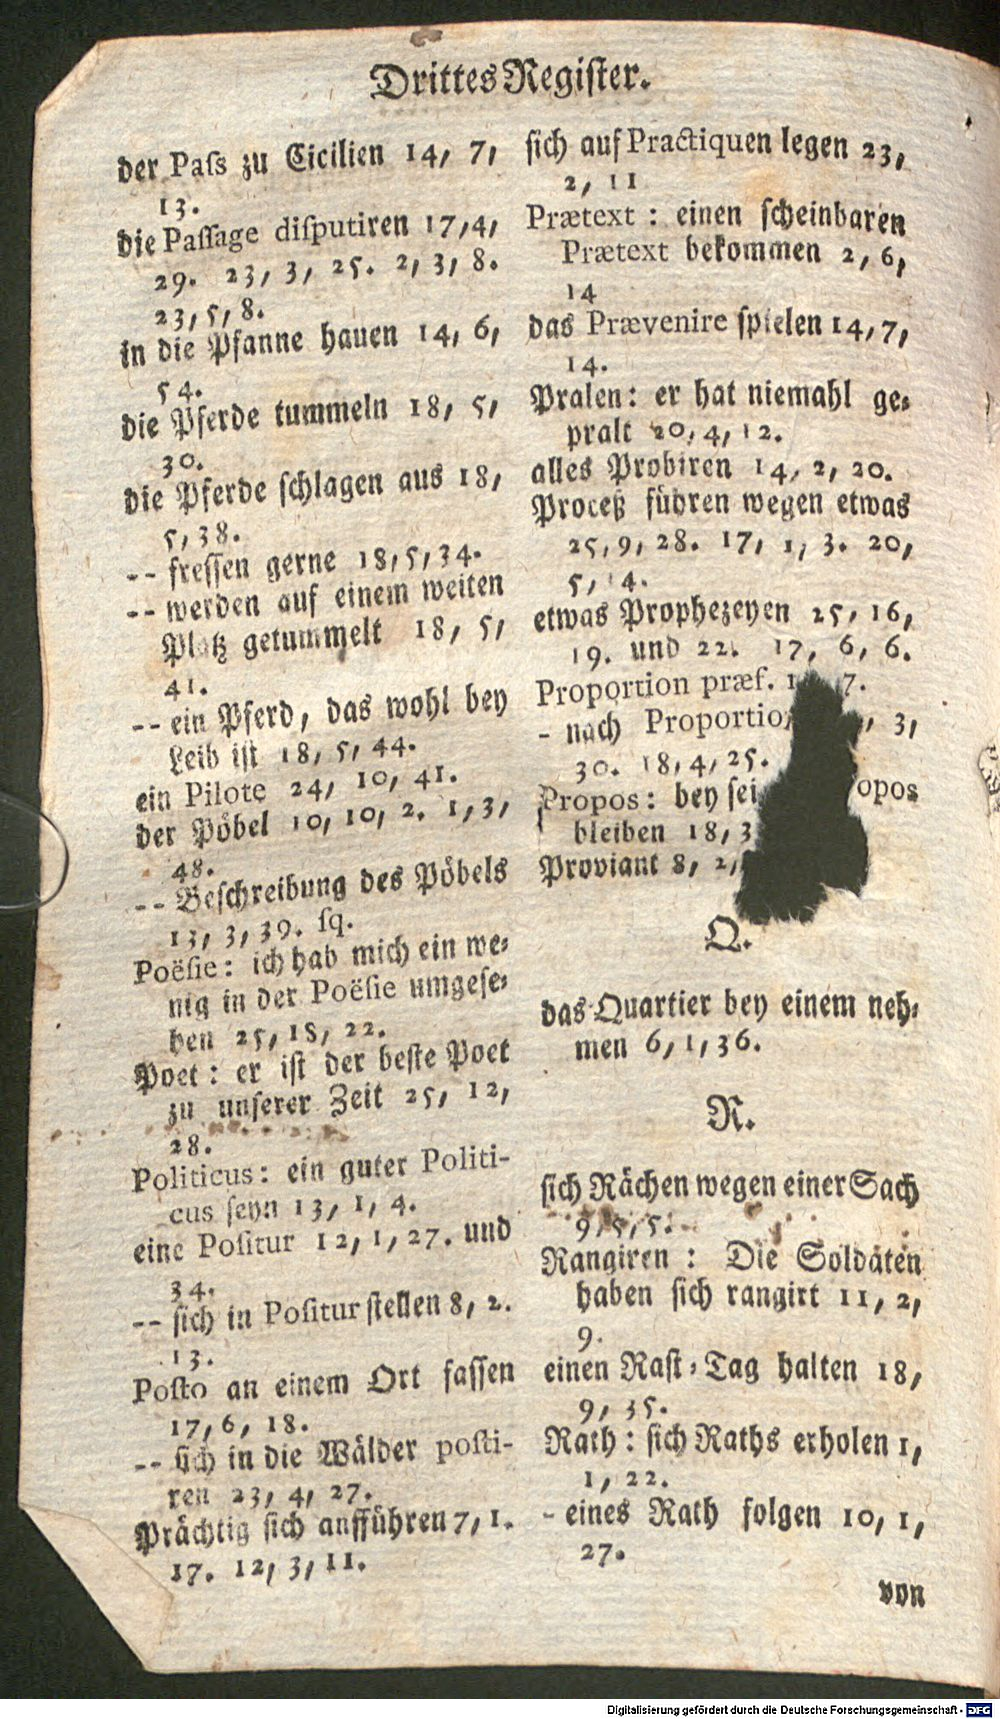 Drittes Register.
der Paſs zu Cicilien 14, 7,
13.
die Paſſage diſputiren 17, 4,
29. 23, 3, 25. 2, 3, 8.
23, 5, 8.
in die Pfanne hauen 14, 6,
54.
die Pferde tummeln 18, 5,
30.
die Pferde ſchlagen aus 18,
5, 38.
-- freſſen gerne 18, 5, 34.
-- werden auf einem weiten
Platz getummelt 18, 5,
41.
-- ein Pferd, das wohl bey
Leib iſt 18, 5, 44.
ein Pilote 24, 10, 41.
der Pöbel 10, 10, 2. 1, 3,
48.
-- Beſchreibung des Pöbels
13, 3, 39. ſq.
Poëſie: ich hab mich ein we⸗
nig in der Poëſie umgeſe⸗
hen 25, 18, 22.
Poet: er iſt der beſte Poet
zu unſerer Zeit 25, 12,
28.
Politicus: ein guter Politi-
cus ſeyn 13, 1, 4.
eine Poſitur 12, 1, 27. und
34.
-- ſich in Poſitur ſtellen 8, 2.
13.
Poſto an einem Ort faſſen
17, 6, 18.
-- ſich in die Wälder poſti-
ren 23, 4, 27.
Prächtig ſich aufführen 7, 1.
17. 12, 3, 11.
ſich auf Practiquen legen 23,
2, 11
Prætext: einen ſcheinbaren
Prætext bekommen 2, 6,
14
das Prævenire ſpielen 14, 7,
14.
Pralen: er hat niemahl ge⸗
pralt 20, 4, 12.
alles Probiren 14, 2, 20.
Proceß führen wegen etwas
25, 9, 28. 17, 1, 3. 20,
5, 14.
etwas Prophezeyen 25, 16,
19. und 22. 17, 6, 6.
Proportion præſ. 1 7.
- nach Proportio , 3,
30. 18, 4, 25.
Propos: bey ſei opos
bleiben 18, 3
Proviant 8, 2,
Q.
das Quartier bey einem neh⸗
men 6, 1, 36.
R.
ſich Rächen wegen einer Sach
9, 5, 5.
Rangiren: Die Soldaten
haben ſich rangirt 11, 2,
9.
einen Raſt⸗Tag halten 18,
9, 35.
Rath: ſich Raths erholen 1,
1, 22.
- eines Rath folgen 10, 1,
27.
von
Digitalisierung gefördert durch die Deutsche Forschungsgemeinschaft - DFG